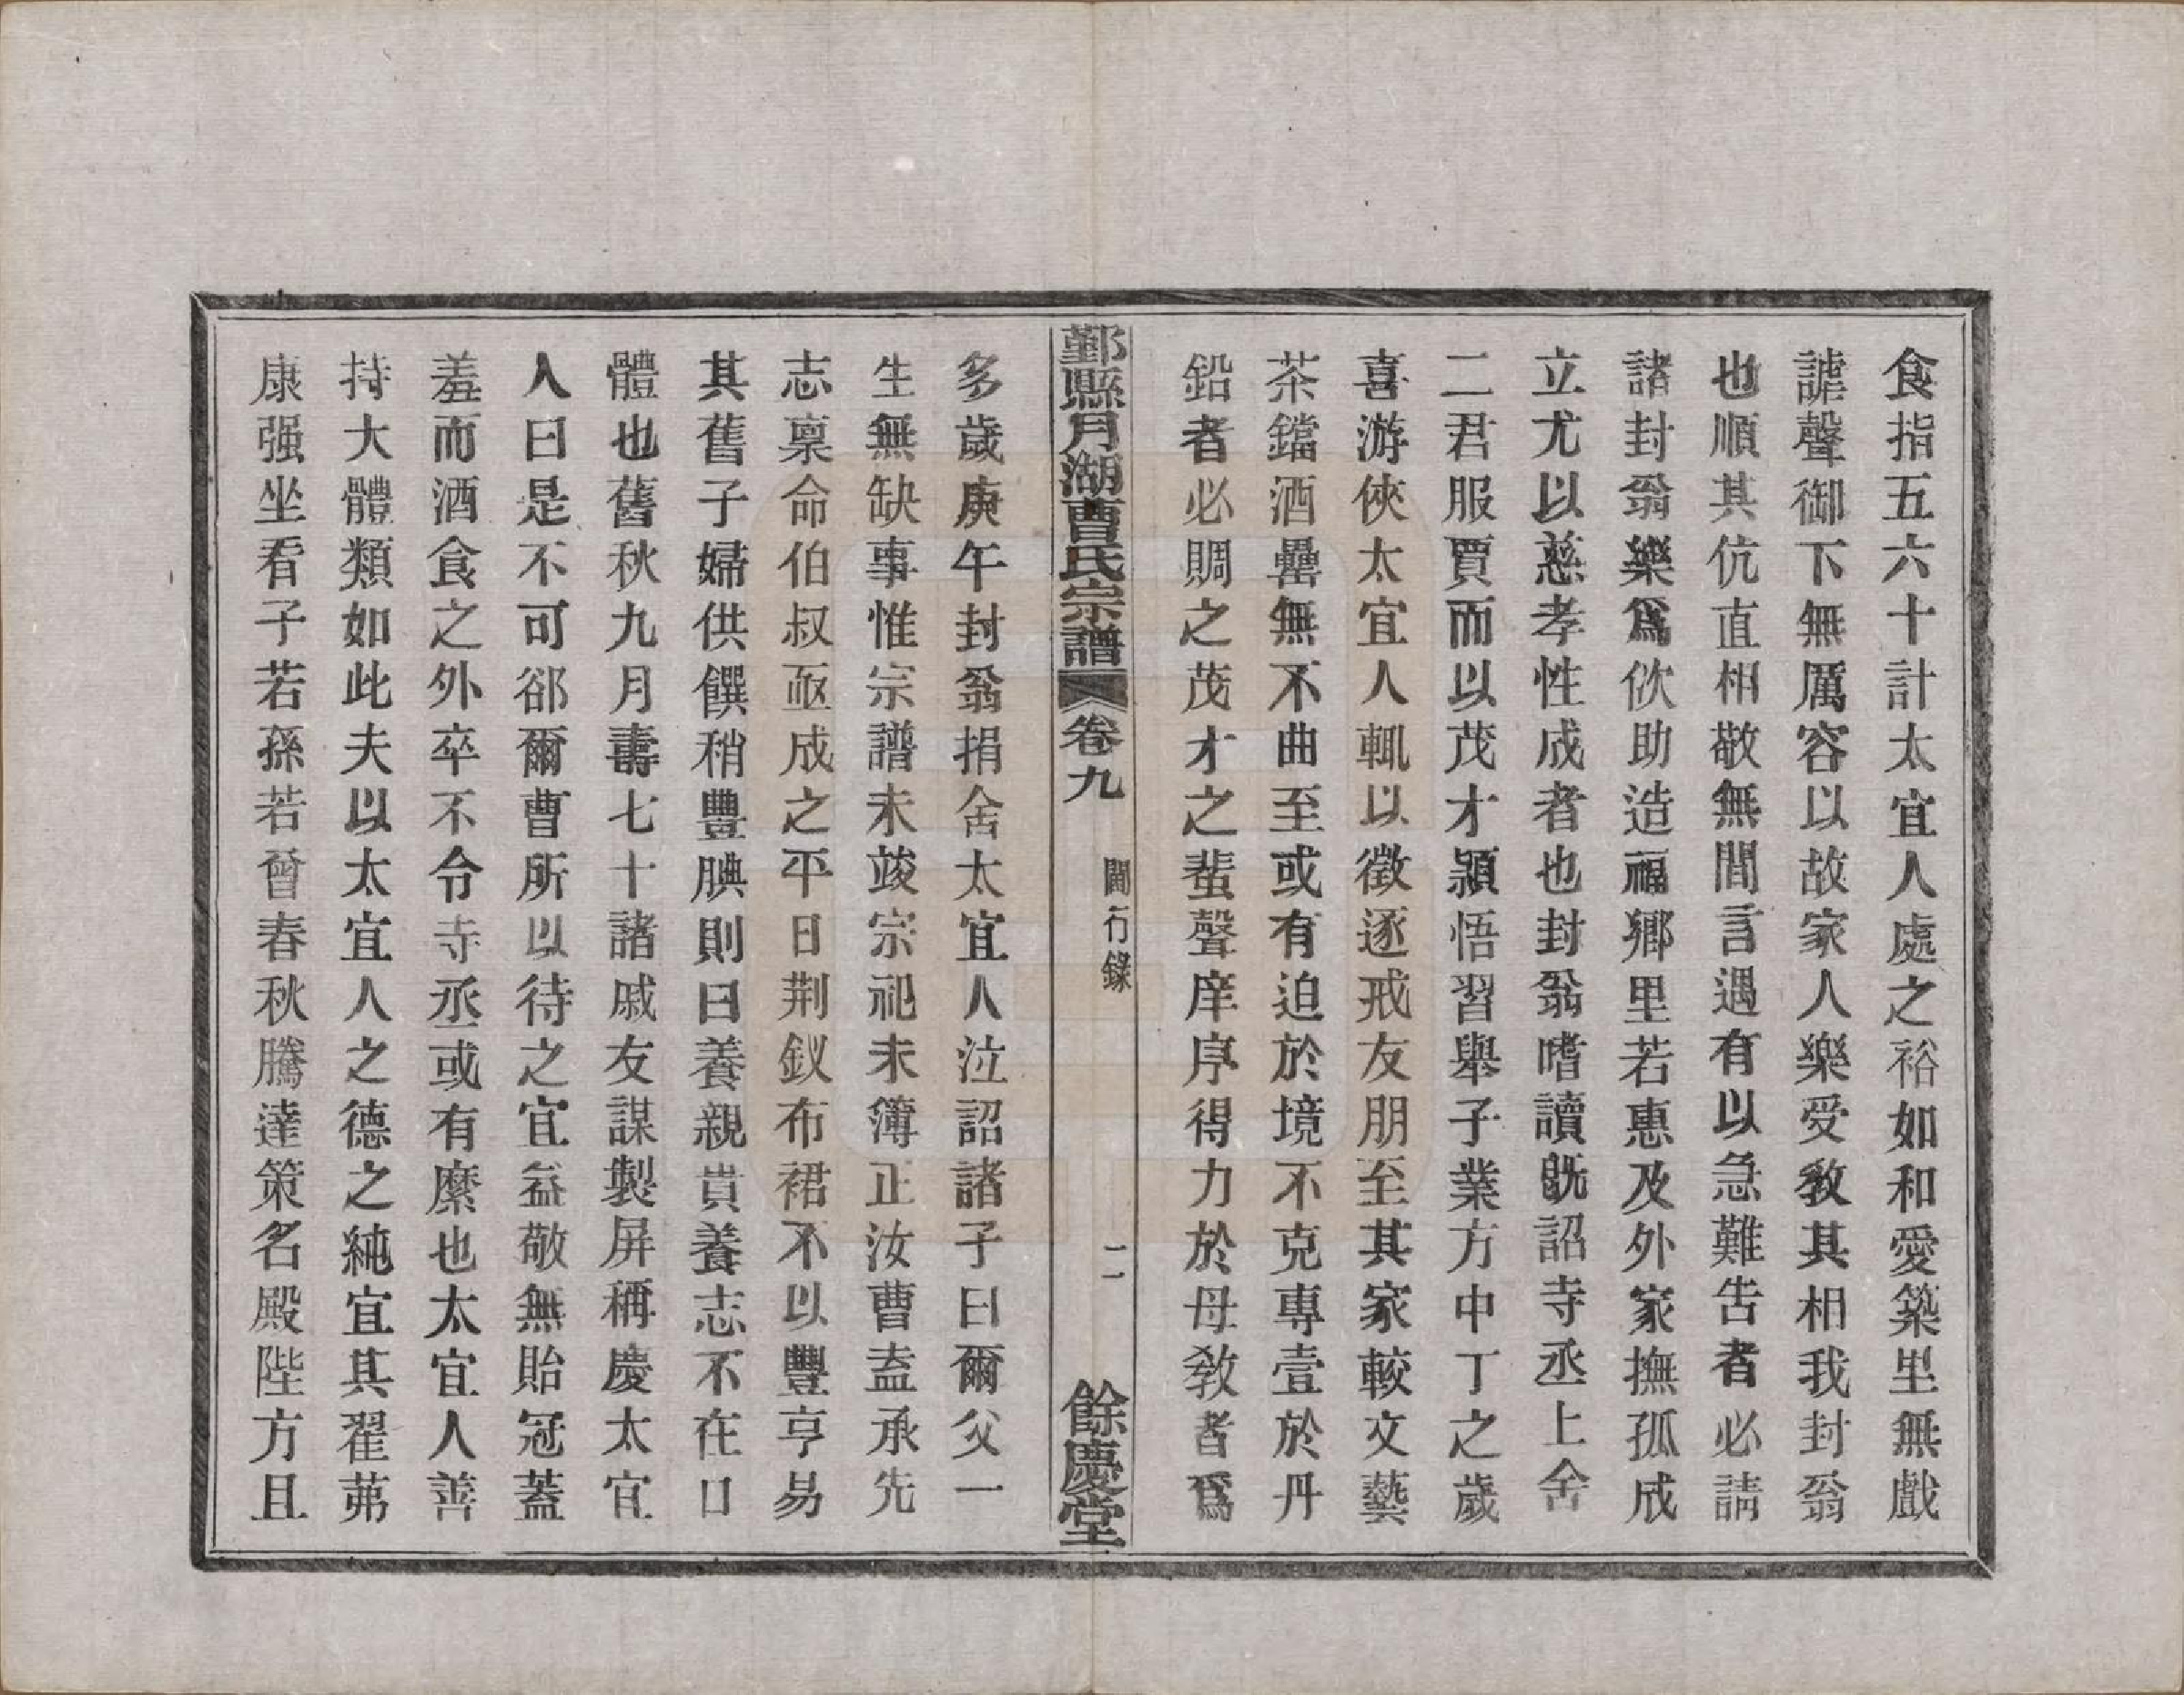 食指五六十計太宜人處之裕如和愛築里無戲
謔聲御下無厲容以故家人樂受教其相我封翁
也順其伉直相敬無間言遇有以急難吿者必請
諸封翁樂爲佽助造福鄉里若惠及外家撫孤成
立尤以慈孝性成者也封翁嗜讀旣詔寺丞上舍
二君服賈而以茂才頴悟習舉子業方中丁之歲
喜游俠太宜人輒以徵逐戒友朋至其家較文藝
茶鐺酒罍無不曲至或有迫於境不克專壹於丹
鉛者必賙之茂才之蜚聲庠序得力於母敎者爲
鄞縣月湖曹氏宗譜 卷九 閫行錄 二 餘慶堂
多歲庚午封翁捐舍太宜人泣詔諸子曰爾父一
生無缺事惟宗譜未竣宗祀未簿正汝曹盍承先
志稟命伯叔亟成之平日荆釵布裙不以豐亨易
其舊子婦供饌稍豐腆則曰養親貴養志不在口
體也舊秋九月壽七十諸戚友謀製屏稱慶太宜
人曰是不可郤爾曹所以待之宜益敬無貽冠蓋
羞而酒食之外卒不令寺丞或有縻也太宜人善
持大體類如此夫以太宜人之德之純宜其翟茀
康强坐看子若孫若曾春秋騰達策名殿陛方且